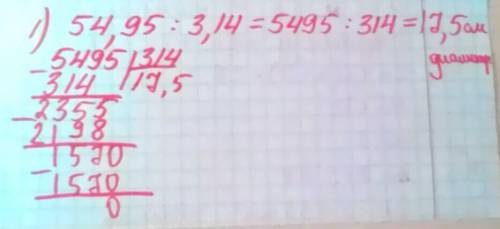 1) 54,95 : 3,14 = 5495 : 314 = 17,5 см
диаметр
- 5495 | 314
314 | 17,5
- 2355
2198
- 1570
1570
0